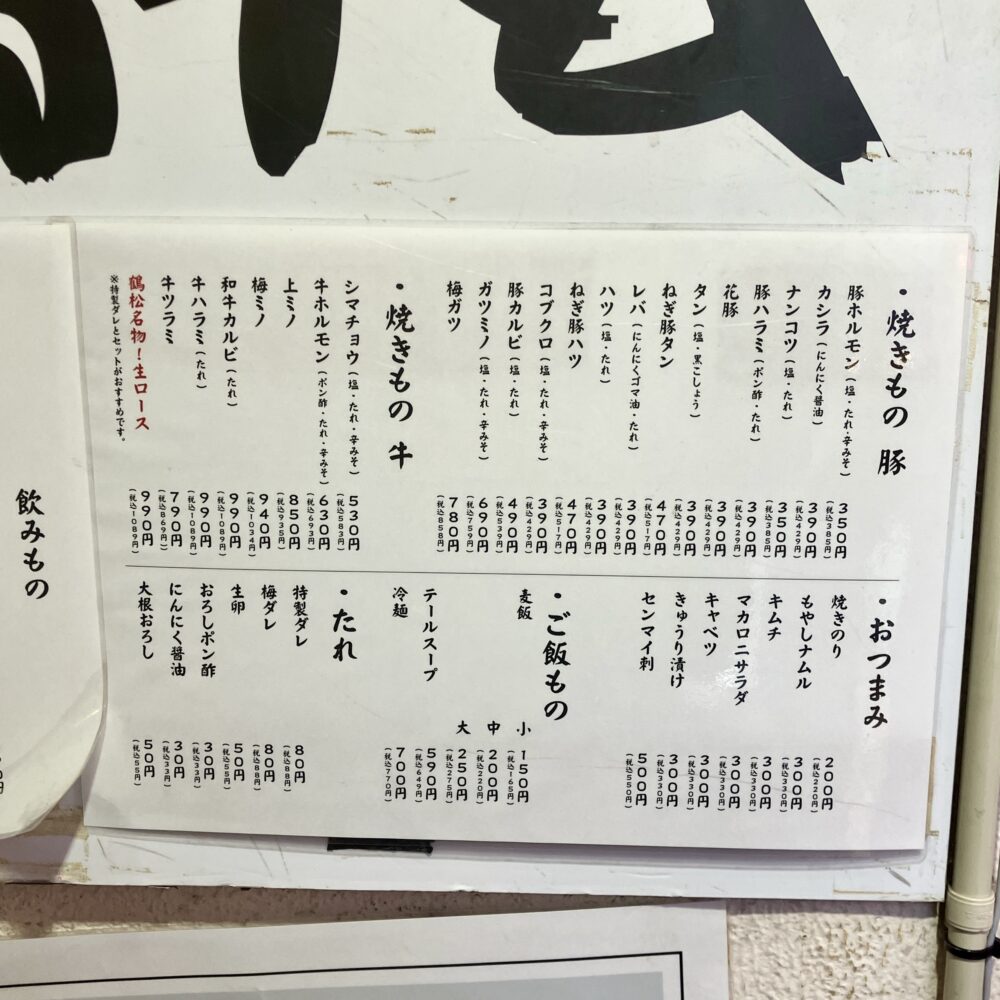 ・焼きもの 豚
豚ホルモン(塩・たれ・辛みそ) 350円(税込385円)
カシラ(にんにく醤油) 390円(税込429円)
ナンコツ(塩・たれ) 350円(税込385円)
豚ハラミ(ポン酢・たれ) 390円(税込429円)
花豚 390円(税込429円)
タン(塩・黒こしょう) 390円(税込429円)
ねぎ豚タン 470円(税込517円)
レバ(にんにくゴマ油・たれ) 390円(税込429円)
ハツ(塩・たれ) 390円(税込429円)
ねぎ豚ハツ 470円(税込517円)
コブクロ(塩・たれ・辛みそ) 390円(税込429円)
豚カルビ(塩・たれ) 490円(税込539円)
ガツミノ(塩・たれ・辛みそ) 690円(税込759円)
梅ガツ 780円(税込858円)
・焼きもの 牛
シマチョウ(塩・たれ・辛みそ) 530円(税込583円)
牛ホルモン(ポン酢・たれ・辛みそ) 630円(税込693円)
上ミノ 850円(税込935円)
梅ミノ 940円(税込1034円)
和牛カルビ(たれ) 990円(税込1089円)
牛ハラミ(たれ) 990円(税込1089円)
牛ツラミ 790円(税込869円)
鶴松名物!生ロース 990円(税込1089円)
※特製ダレとセットがおすすめです。
・おつまみ
焼きのり 200円(税込220円)
もやしナムル 300円(税込330円)
キムチ 300円(税込330円)
マカロニサラダ 300円(税込330円)
キャベツ 300円(税込330円)
きゅうり漬け 300円(税込330円)
センマイ刺 500円(税込550円)
・ご飯もの
麦飯 小 150円(税込165円)
中 200円(税込220円)
大 250円(税込275円)
テールスープ 590円(税込649円)
冷麺 700円(税込770円)
・たれ
特製ダレ 80円(税込88円)
梅ダレ 80円(税込88円)
生卵 50円(税込55円)
おろしポン酢 30円(税込33円)
にんにく醤油 30円(税込33円)
大根おろし 50円(税込55円)
飲みもの